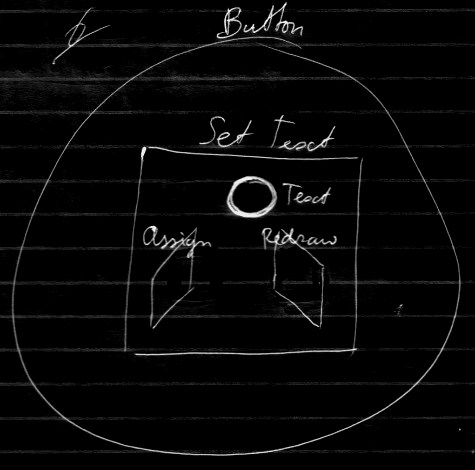 Button
Set Text
Text
Assign
Redraw